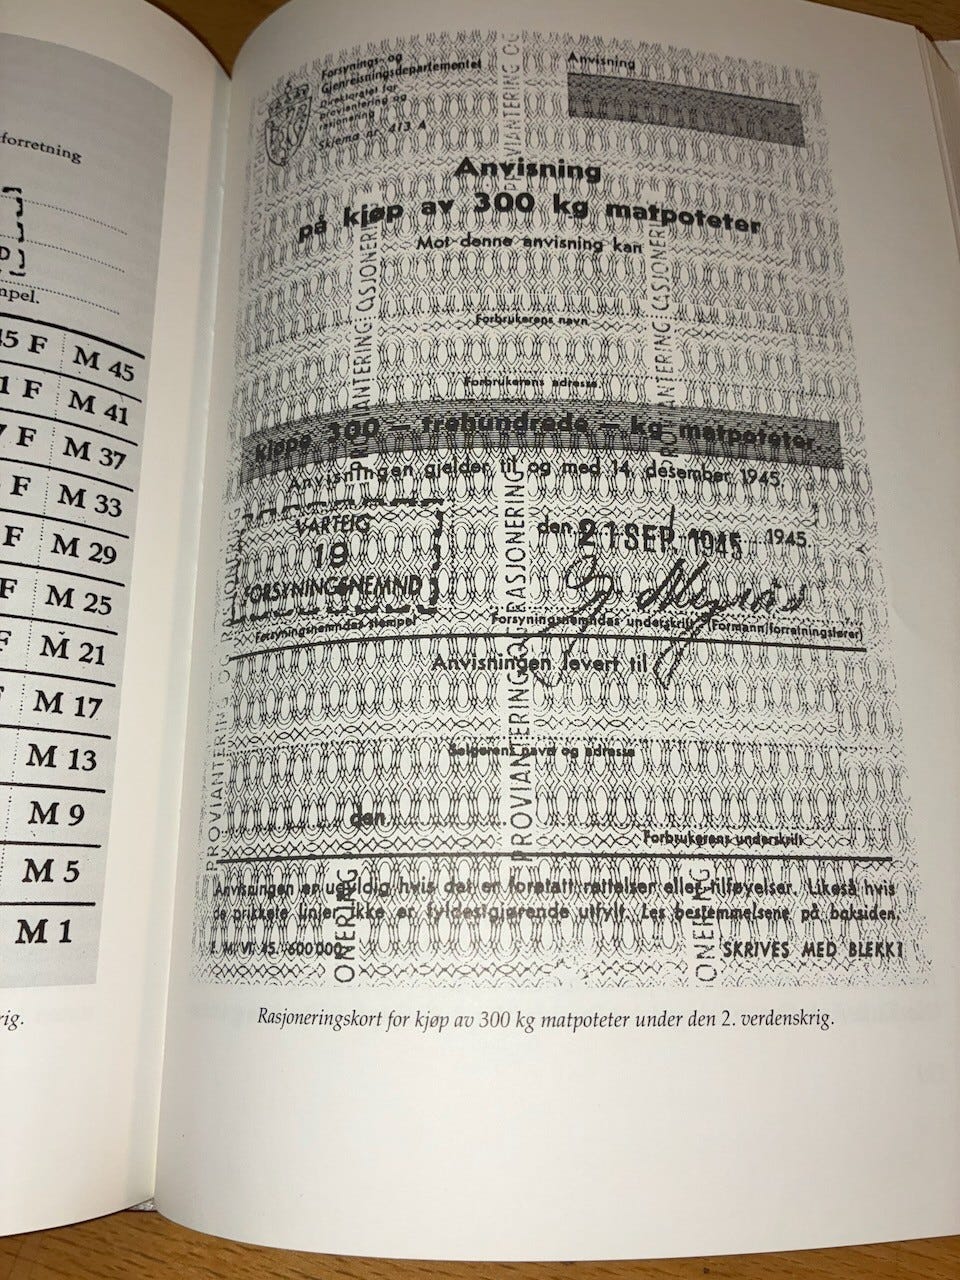 forretning
D
mpel.
45 F M 45
1 F M 41
7 F M 37
F M 33
F M 29
F M 25
F M 21
M 17
M 13
M 9
M 5
M 1
rig.
Forsynings- og
Gjenreisningsdepartementet
Direktoratet for
proviantering og
rasjonering
Skjema nr. 413 A
Anvisning
Anvisning
på kjøp av 300 kg matpoteter
Mot denne anvisning kan
Forbrukerens navn
Forbrukerens adresse
kjøpe 300 — trehundrede — kg matpoteter
Anvisningen gjelder til og med 14. desember 1945.
VARTEIG
19
FORSYNINGSNEMND
den 21 SEP. 1945 1945.
Forsyningsnemndas stempel
Forsyningsnemndas underskrift (Formann/forretningsfører)
Anvisningen levert til
Selgerens navn og adresse
den
Forbrukerens underskrift
Anvisningen er ugyldig hvis det er foretatt rettelser eller tilføyelser. Likeså hvis
de prikkete linjer ikke er fyldestgjørende utfylt. Les bestemmelsene på baksiden.
E. M. VI. 45. 600 000. SKRIVES MED BLEKK!
PROVIANTERING OG RASJONERING
Rasjoneringskort for kjøp av 300 kg matpoteter under den 2. verdenskrig.